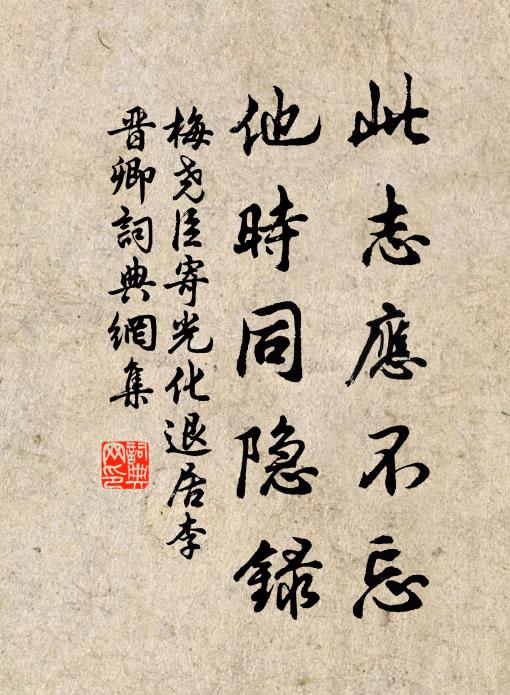 此志應不忘
他時同隐録
梅尧臣寄光化退居李
晋卿詞典網集
詞典網印